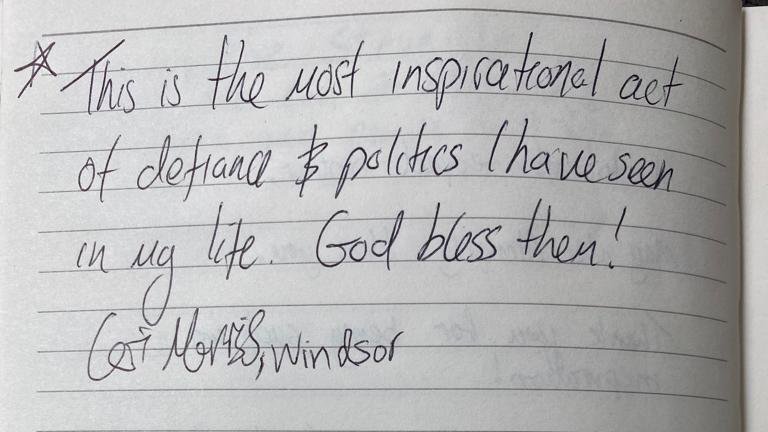 This is the most inspirational act
of defiance & politics I have seen
in my life. God bless them!
Morris, Windsor